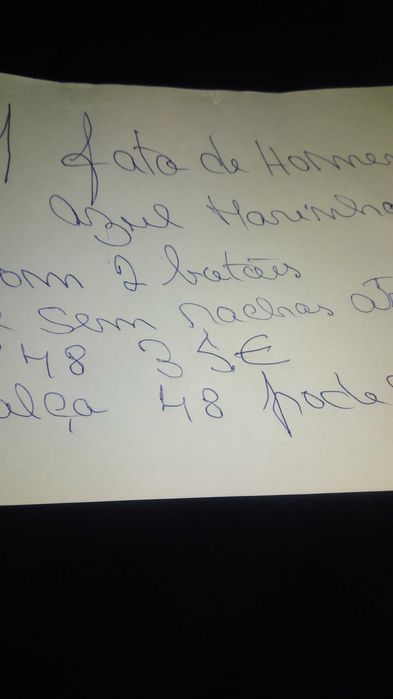 1 fato de Homem
azul Marinho
com 2 botões
e sem rachas at
48 35€
calça 48 pode